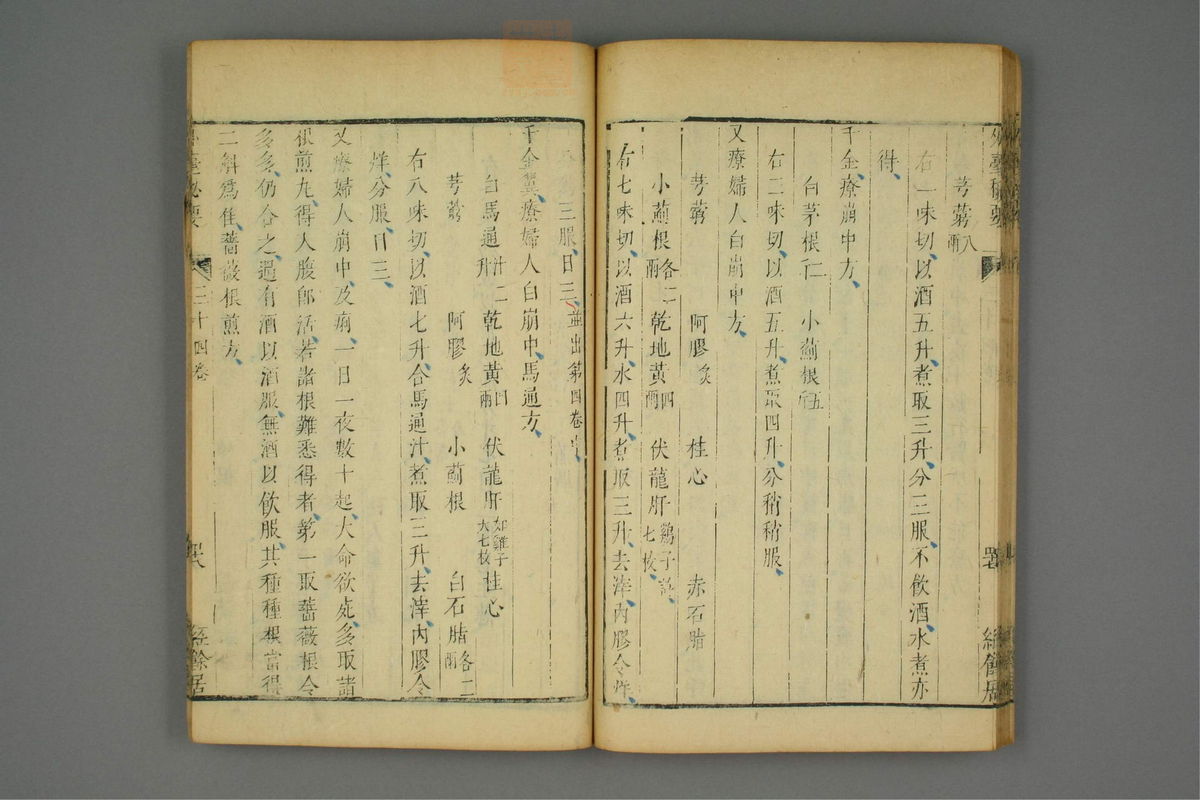 外臺秘要
經餘居
芎藭八兩
右一味切、以酒五升、煮取三升、分三服、不飲酒、水煮亦
得、
千金療崩中方、
白茅根三斤 小薊根五斤
右二味切、以酒五升、煮取四升、分稍稍服、
又療婦人白崩中方、
芎藭 阿膠炙 桂心 赤石脂
小薊根各二兩 乾地黃四兩 伏龍肝雞子許七枚、
右七味切、以酒六升、水四升、煮取三升、去滓、內膠令烊、
三服、日三、並出第四卷中、
千金翼、療婦人白崩中、馬通方、
白馬通汁二升 乾地黃四兩 伏龍肝如雞子大七枚 桂心
芎藭 阿膠炙 小薊根 白石脂各二兩
右八味切、以酒七升、合馬通汁、煮取三升、去滓、內膠令
烊、分服、日三、
又療婦人崩中、及痢、一日一夜數十起、大命欲死、多取諸
根煎丸、得入腹即活、若諸根難悉得者、第一取薔薇根、令
多多、仍合之、遇有酒以酒服、無酒以飲服、其種種根、當得
二斛爲佳、薔薇根煎方、
外臺秘要
三十四卷
經餘居